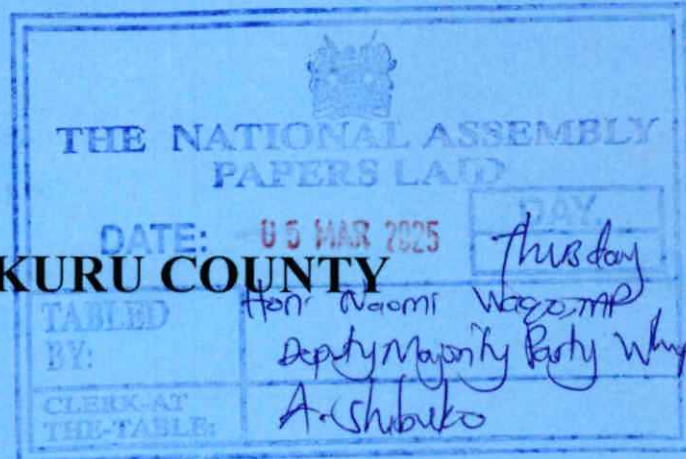 THE NATIONAL ASSEMBLY
PAPERS LAID
DATE: 05 MAR 2025
DAY.
Thursday
KURU COUNTY
TABLED BY:
Hon. Naomi Waqo, MP
Deputy Majority Party Whip
CLERK-AT THE-TABLE:
A. Shibuko